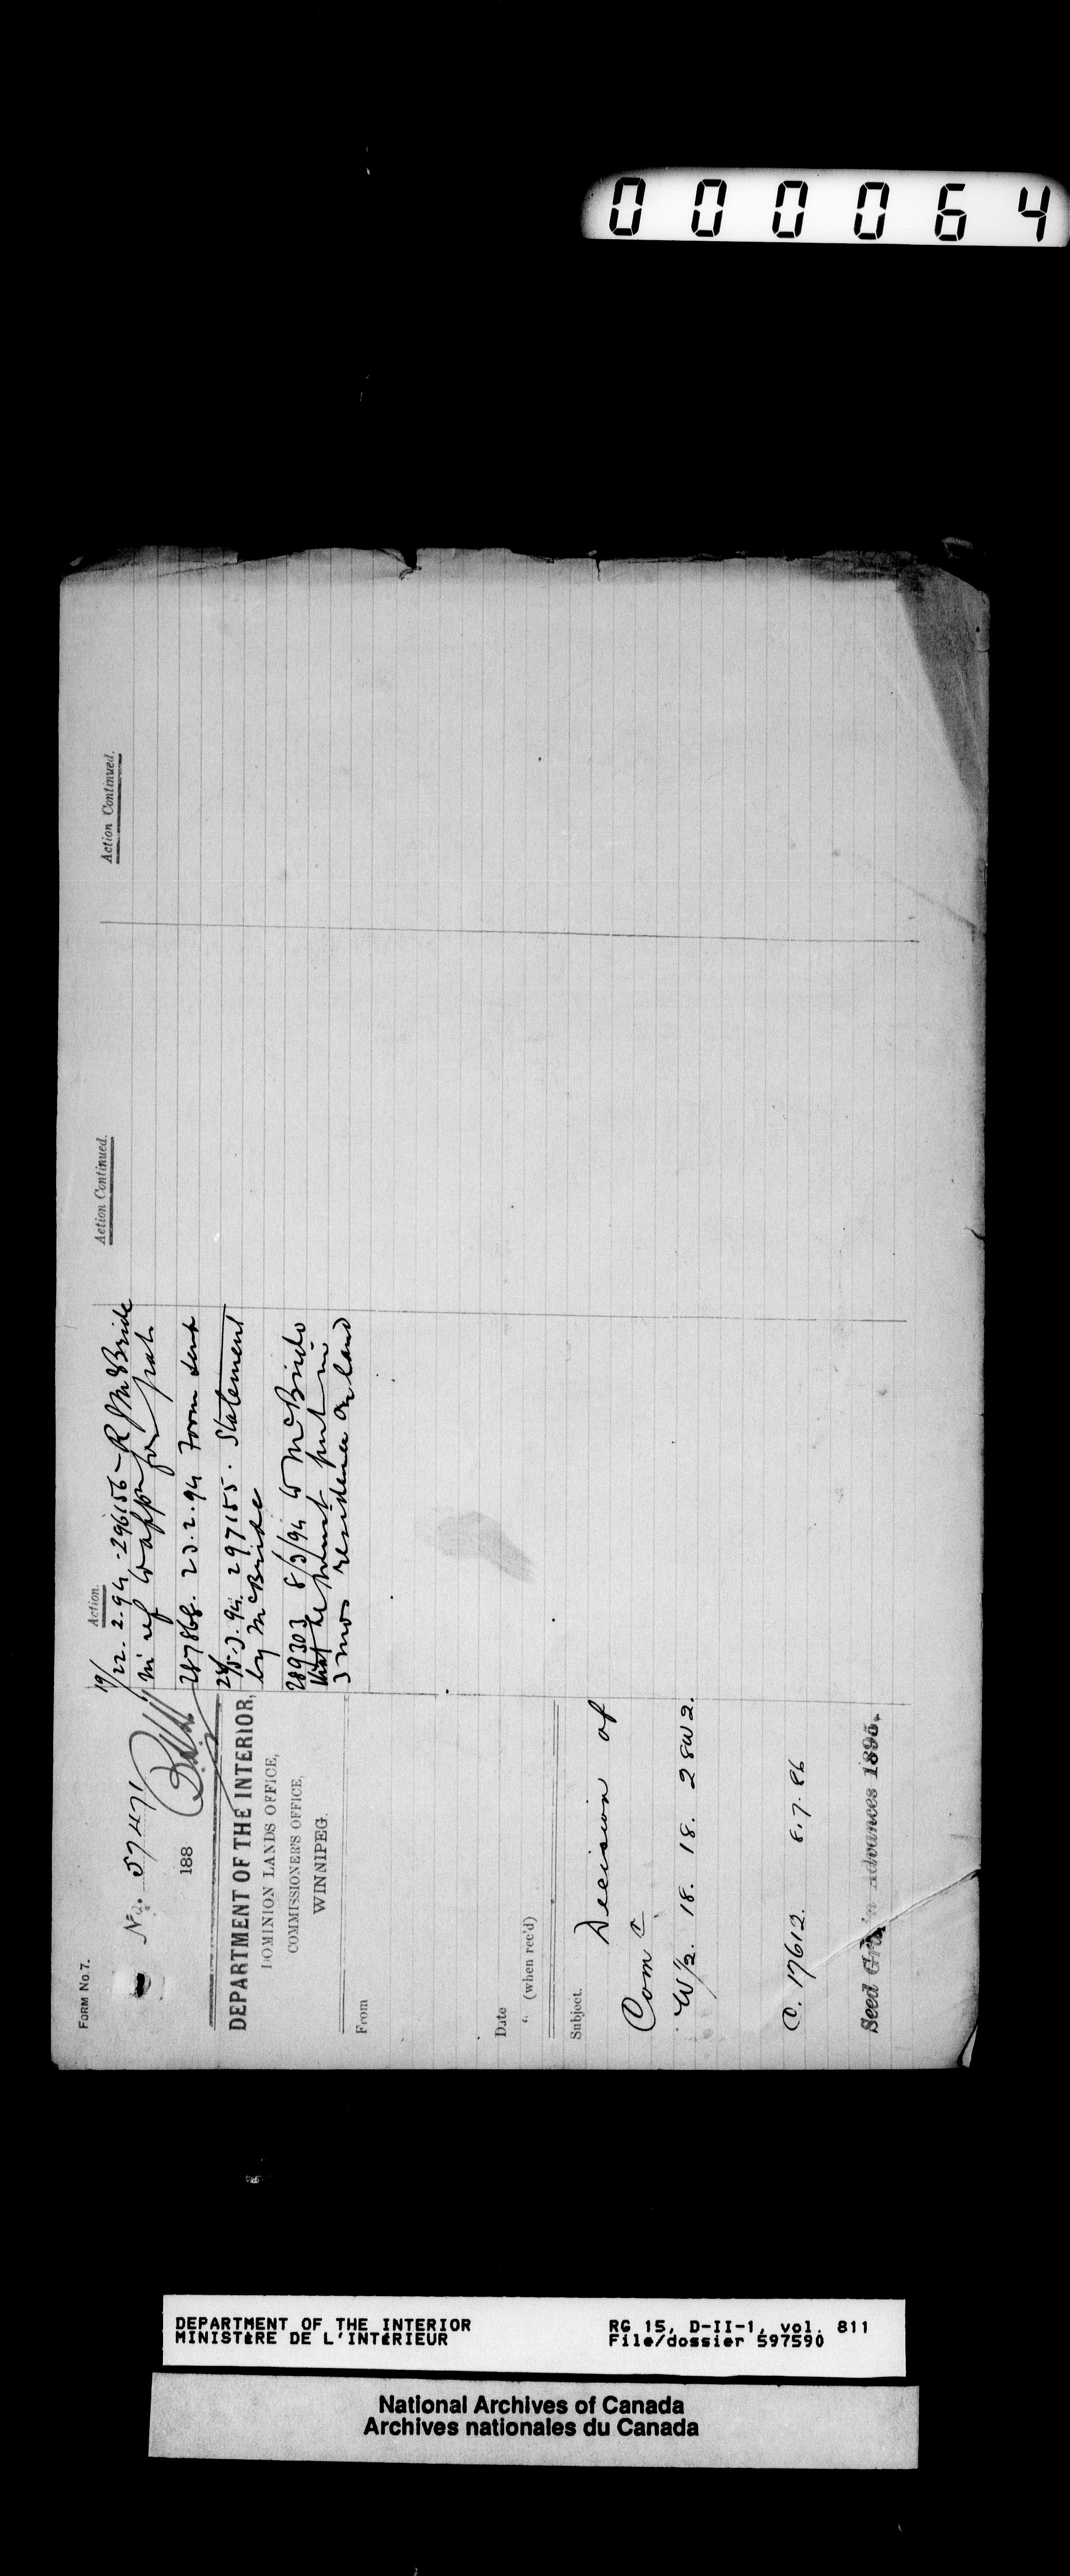 000064
FORM No. 7.
No. 57471
188
DEPARTMENT OF THE INTERIOR,
DOMINION LANDS OFFICE,
COMMISSIONER'S OFFICE,
WINNIPEG.
From
Date
" (when rec'd)
Subject.
Decision of
Com
W½. 18. 18. 2 8W2.
C. 17612. 8.7.86
Seed Grain Advances 1895.
Action.
19/
22.2.94 - 296156 - R McBride
in ref to appn for pat.
287868. 23.2.94 Form sent
5.3.94. 297155. Statement
by McBride
289303 8/3/94 to McBride
that he must put in
3 mos residence on land
Action Continued.
Action Continued.
DEPARTMENT OF THE INTERIOR
MINISTÈRE DE L'INTÉRIEUR
RG 15, D-II-1, vol. 811
File/dossier 597590
National Archives of Canada
Archives nationales du Canada